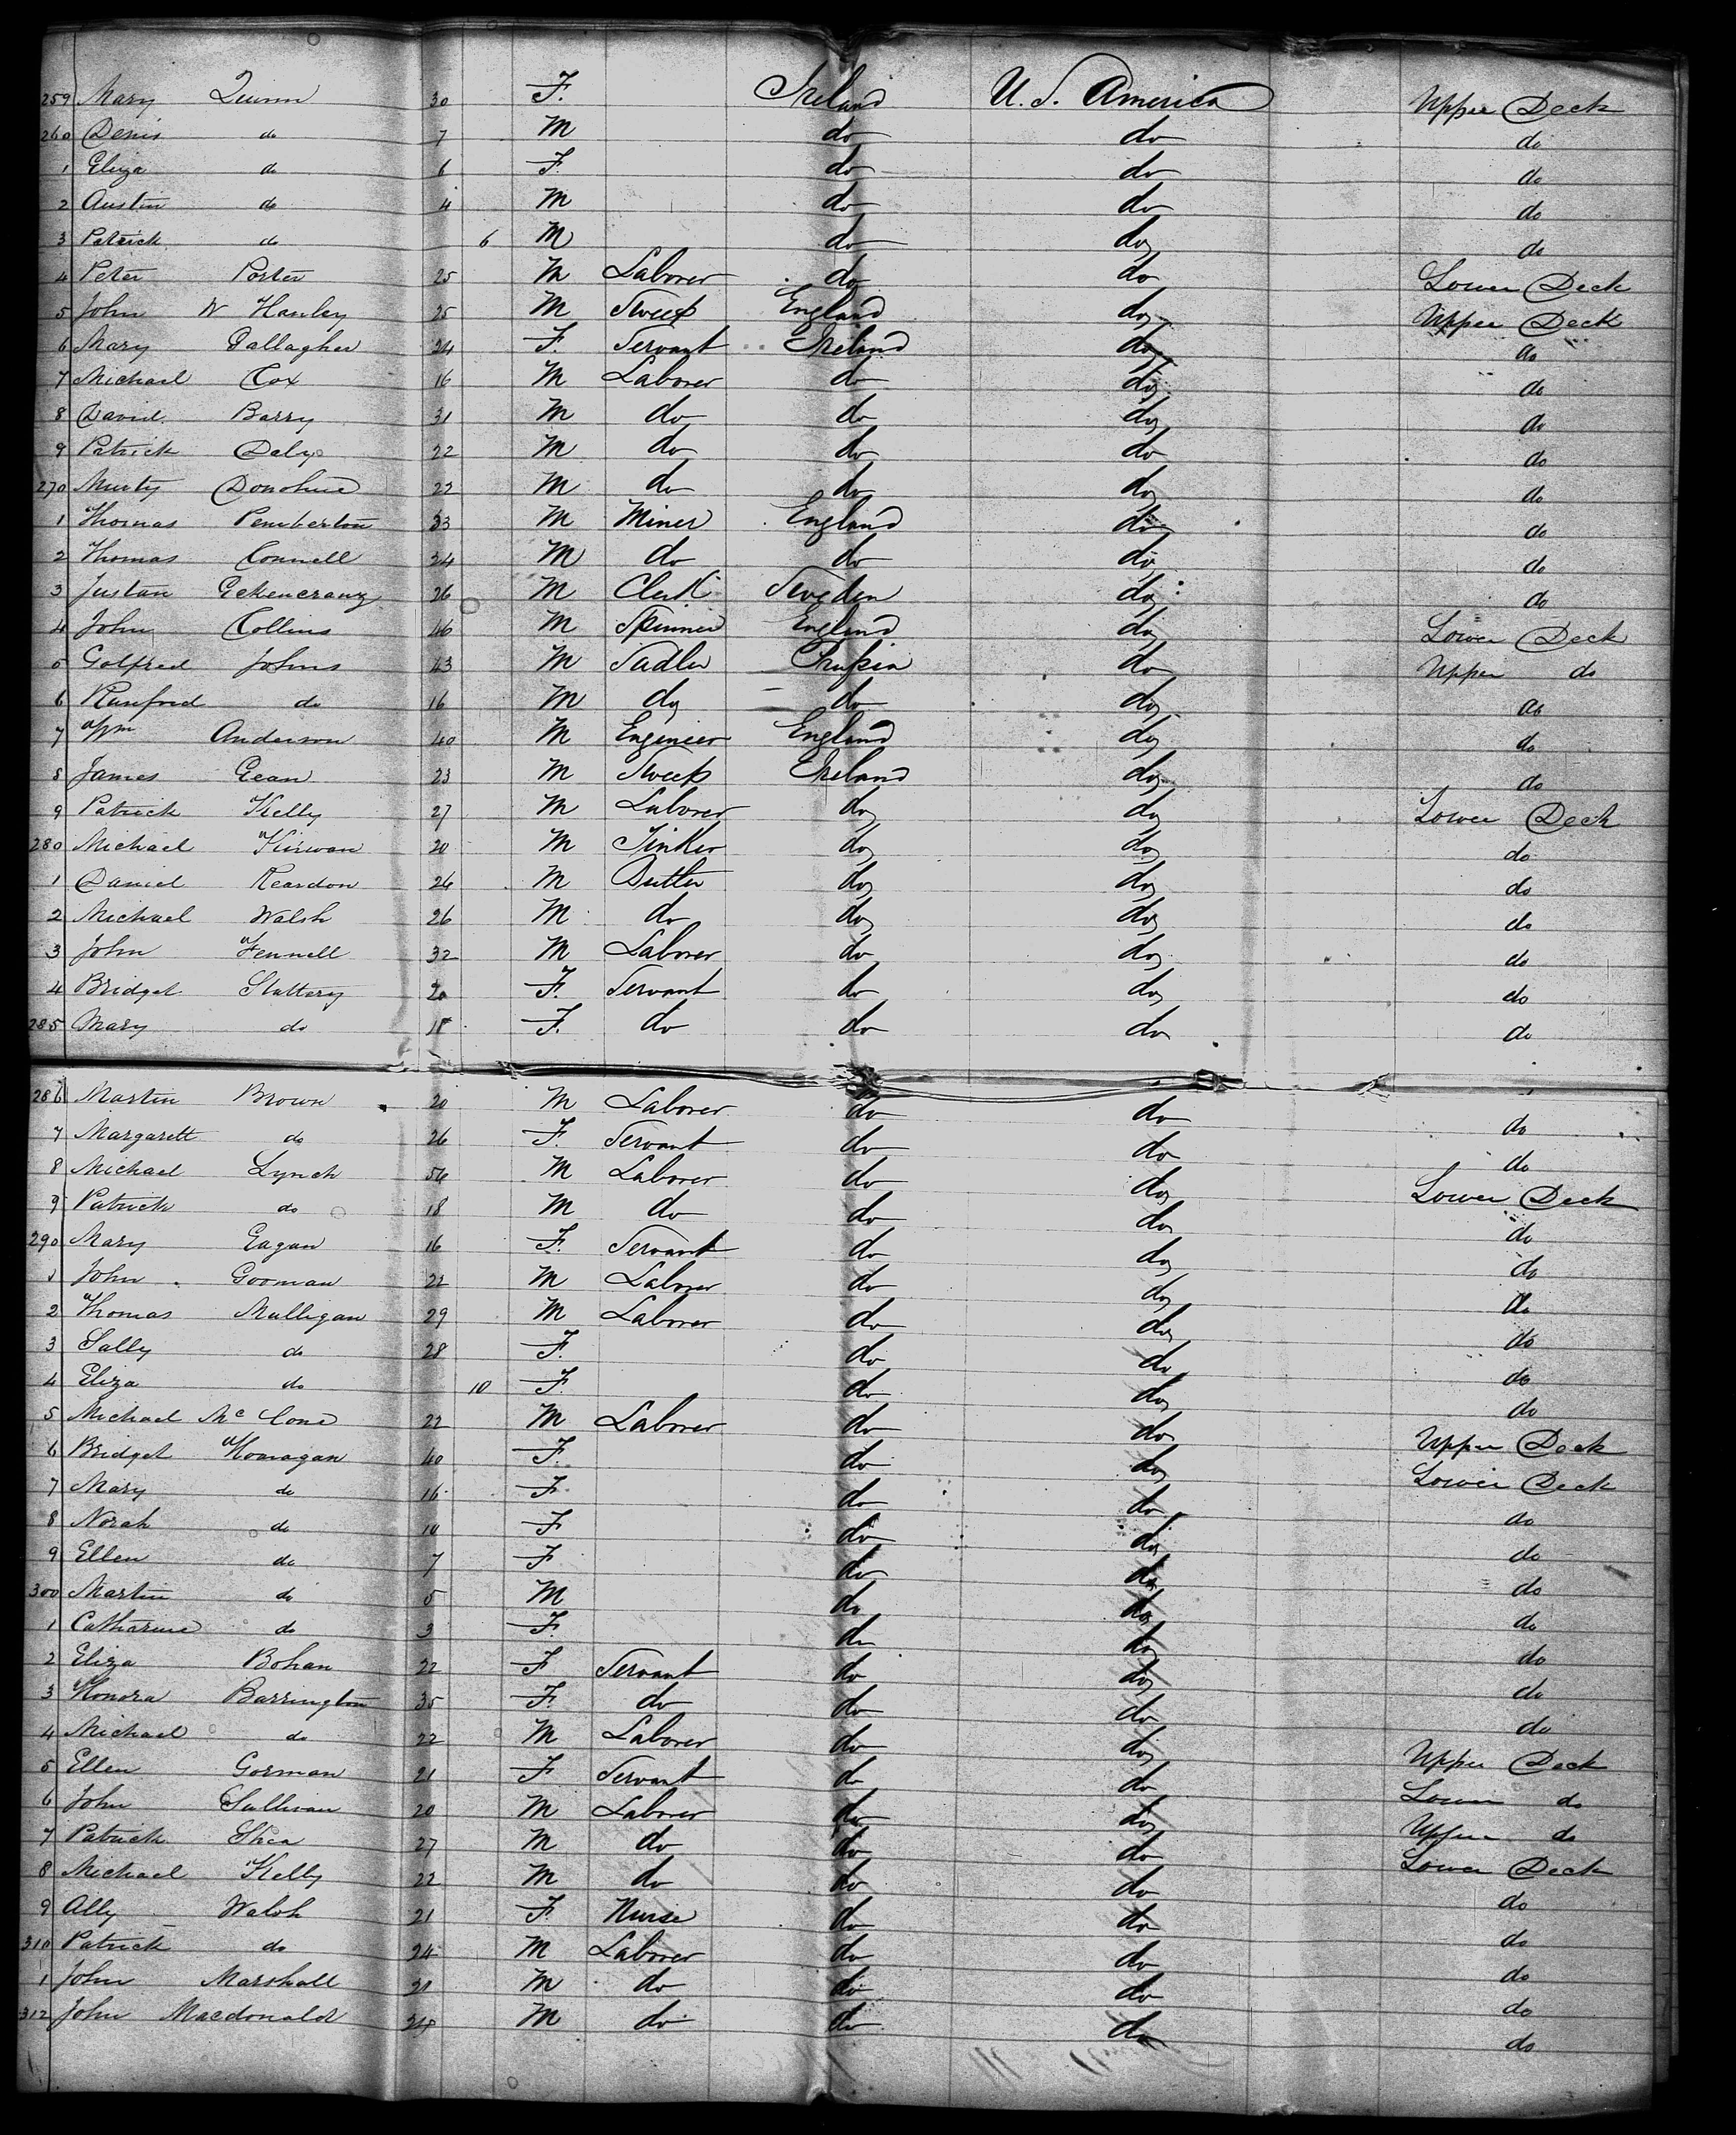 259 Mary Quinn 30 F. Ireland U.S. America Upper Deck
260 Denis do 7 M do do do
1 Eliza do 6 F. do do do
2 Austin do 4 M do do do
3 Patrick do 6 M do do do
4 Peter Porter 25 M Laborer do do Lower Deck
5 John W Hanley 25 M Sweep England do Upper Deck
6 Mary Gallagher 24 F. Servant Ireland do do
7 Michael Cox 16 M Laborer do do do
8 David Barry 31 M do do do do
9 Patrick Daly 22 M do do do do
270 Murty Donohue 22 M do do do do
1 Thomas Pemberton 33 M Miner England do do
2 Thomas Connell 34 M do do do do
3 Justan Eckencranz 26 M Clerk Sweden do do
4 John Collins 46 M Spinner England do Lower Deck
5 Golfred Johns 43 M Sadler Prussia do Upper do
6 Ranford do 16 M do do do do
7 Wm Anderson 40 M Engineer England do do
8 James Gean 23 M Sweep Ireland do do
9 Patrick Kelly 27 M Laborer do do Lower Deck
280 Michael Kirwan 20 M Tinker do do do
1 Daniel Reardon 26 M Butler do do do
2 Michael Walsh 26 M do do do do
3 John Fennell 32 M Laborer do do do
4 Bridget Slattery 20 F. Servant do do do
285 Mary do 18 F. do do do do
286 Martin Brown 20 M Laborer do do do
7 Margarett do 26 F. Servant do do do
8 Michael Lynch 54 M Laborer do do Lower Deck
9 Patrick do 18 M do do do do
290 Mary Eagan 16 F. Servant do do do
1 John Gooman 22 M Laborer do do do
2 Thomas Mulligan 29 M Laborer do do do
3 Sally do 28 F. do do do
4 Eliza do 10 F. do do do
5 Michael Mc Cone 22 M Laborer do do Upper Deck
6 Bridget Honragan 40 F. do do Lower Deck
7 Mary do 16 F. do do do
8 Norah do 10 F do do do
9 Ellen do 7 F do do do
300 Martin do 5 M do do do
1 Catharine do 3 F. do do do
2 Eliza Bohan 22 F Servant do do do
3 Honora Barrington 35 F. do do do do
4 Michael do 22 M Laborer do do Upper Deck
5 Ellen Gorman 21 F Servant do do Lower do
6 John Sullivan 20 M Laborer do do Upper do
7 Patrick Shea 27 M do do do Lower Deck
8 Michael Kelly 22 M do do do do
9 Ally Walsh 21 F. Nurse do do do
310 Patrick do 24 M Laborer do do do
1 John Marshall 21 M do do do do
312 John Macdonald 24 M do do do do